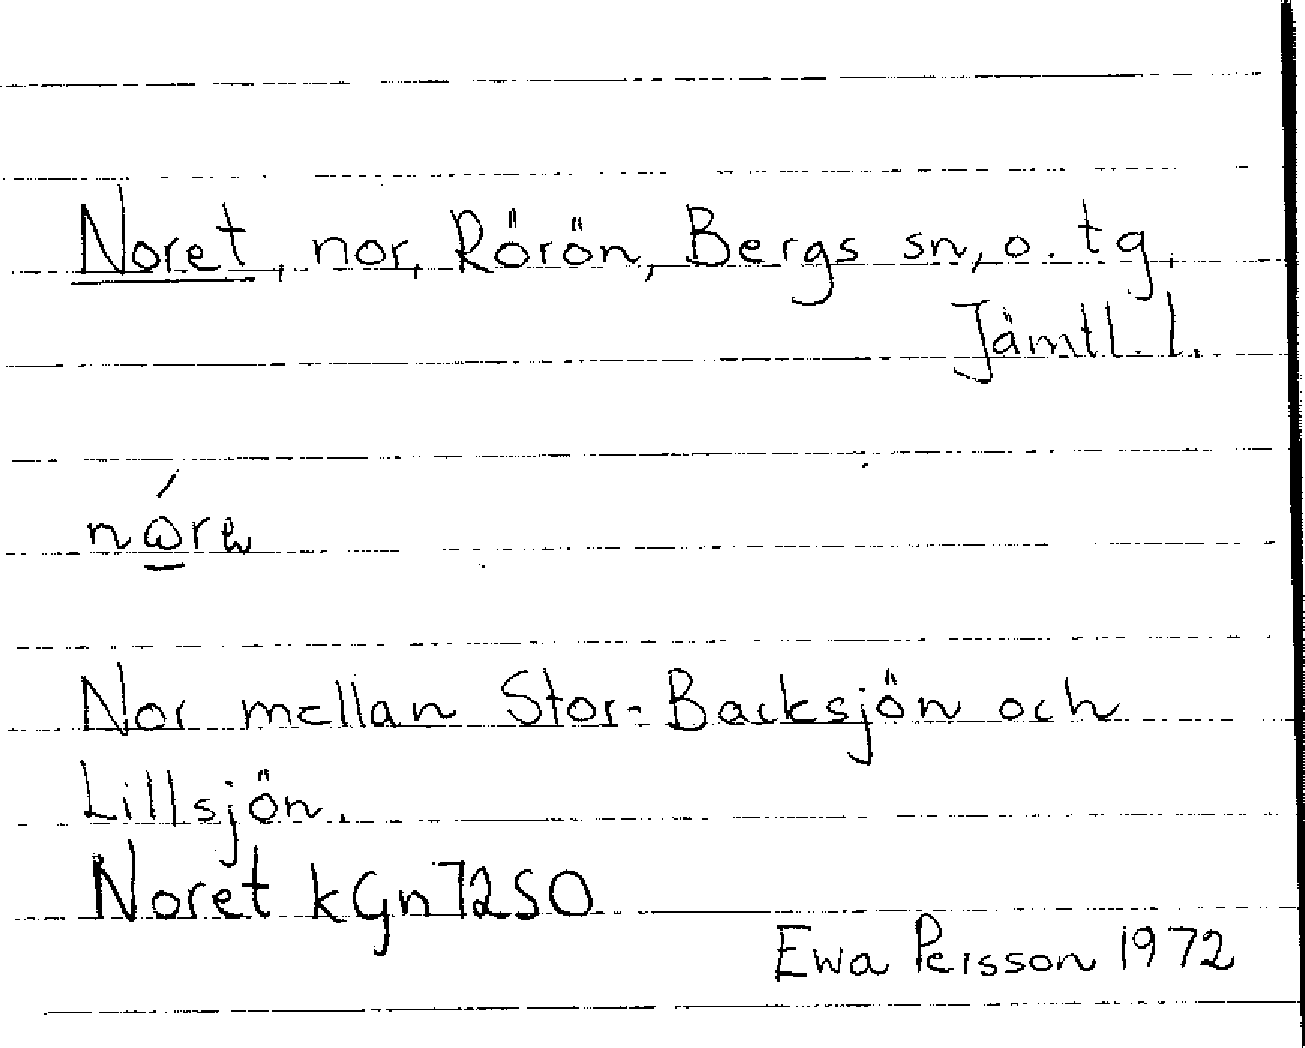 Noret, nor, Rörön, Bergs sn, o. tg.
Jämtl. l.
Nor mellan Stor-Backsjön och
Lillsjön.
Noret kGn72SO
Ewa Persson 1972